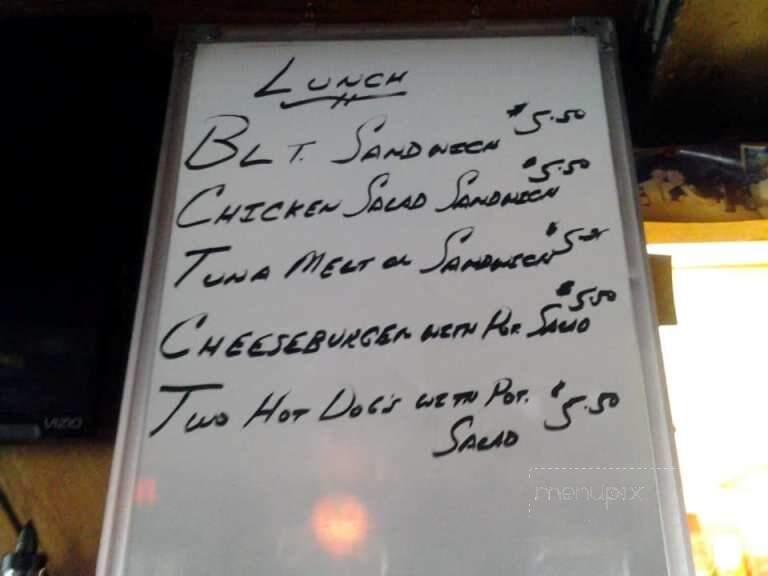 LUNCH
BLT. SANDWICH $5.50
CHICKEN SALAD SANDWICH $5.50
TUNA MELT OR SANDWICH
CHEESEBURGER WITH POT SALAD $5.50
TWO HOT DOG'S WITH POT. $5.50
SALAD
VIZIO
menupix